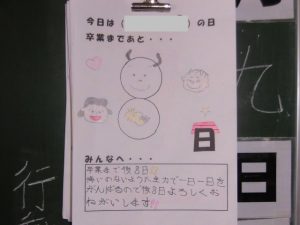 今日は( )の日
卒業まであと・・・
日
みんなへ・・・
卒業まで後8日!!
悔いのないよう全力で一日一日を
がんばるので後8日よろしくお
ねがいします!!
九
日
行